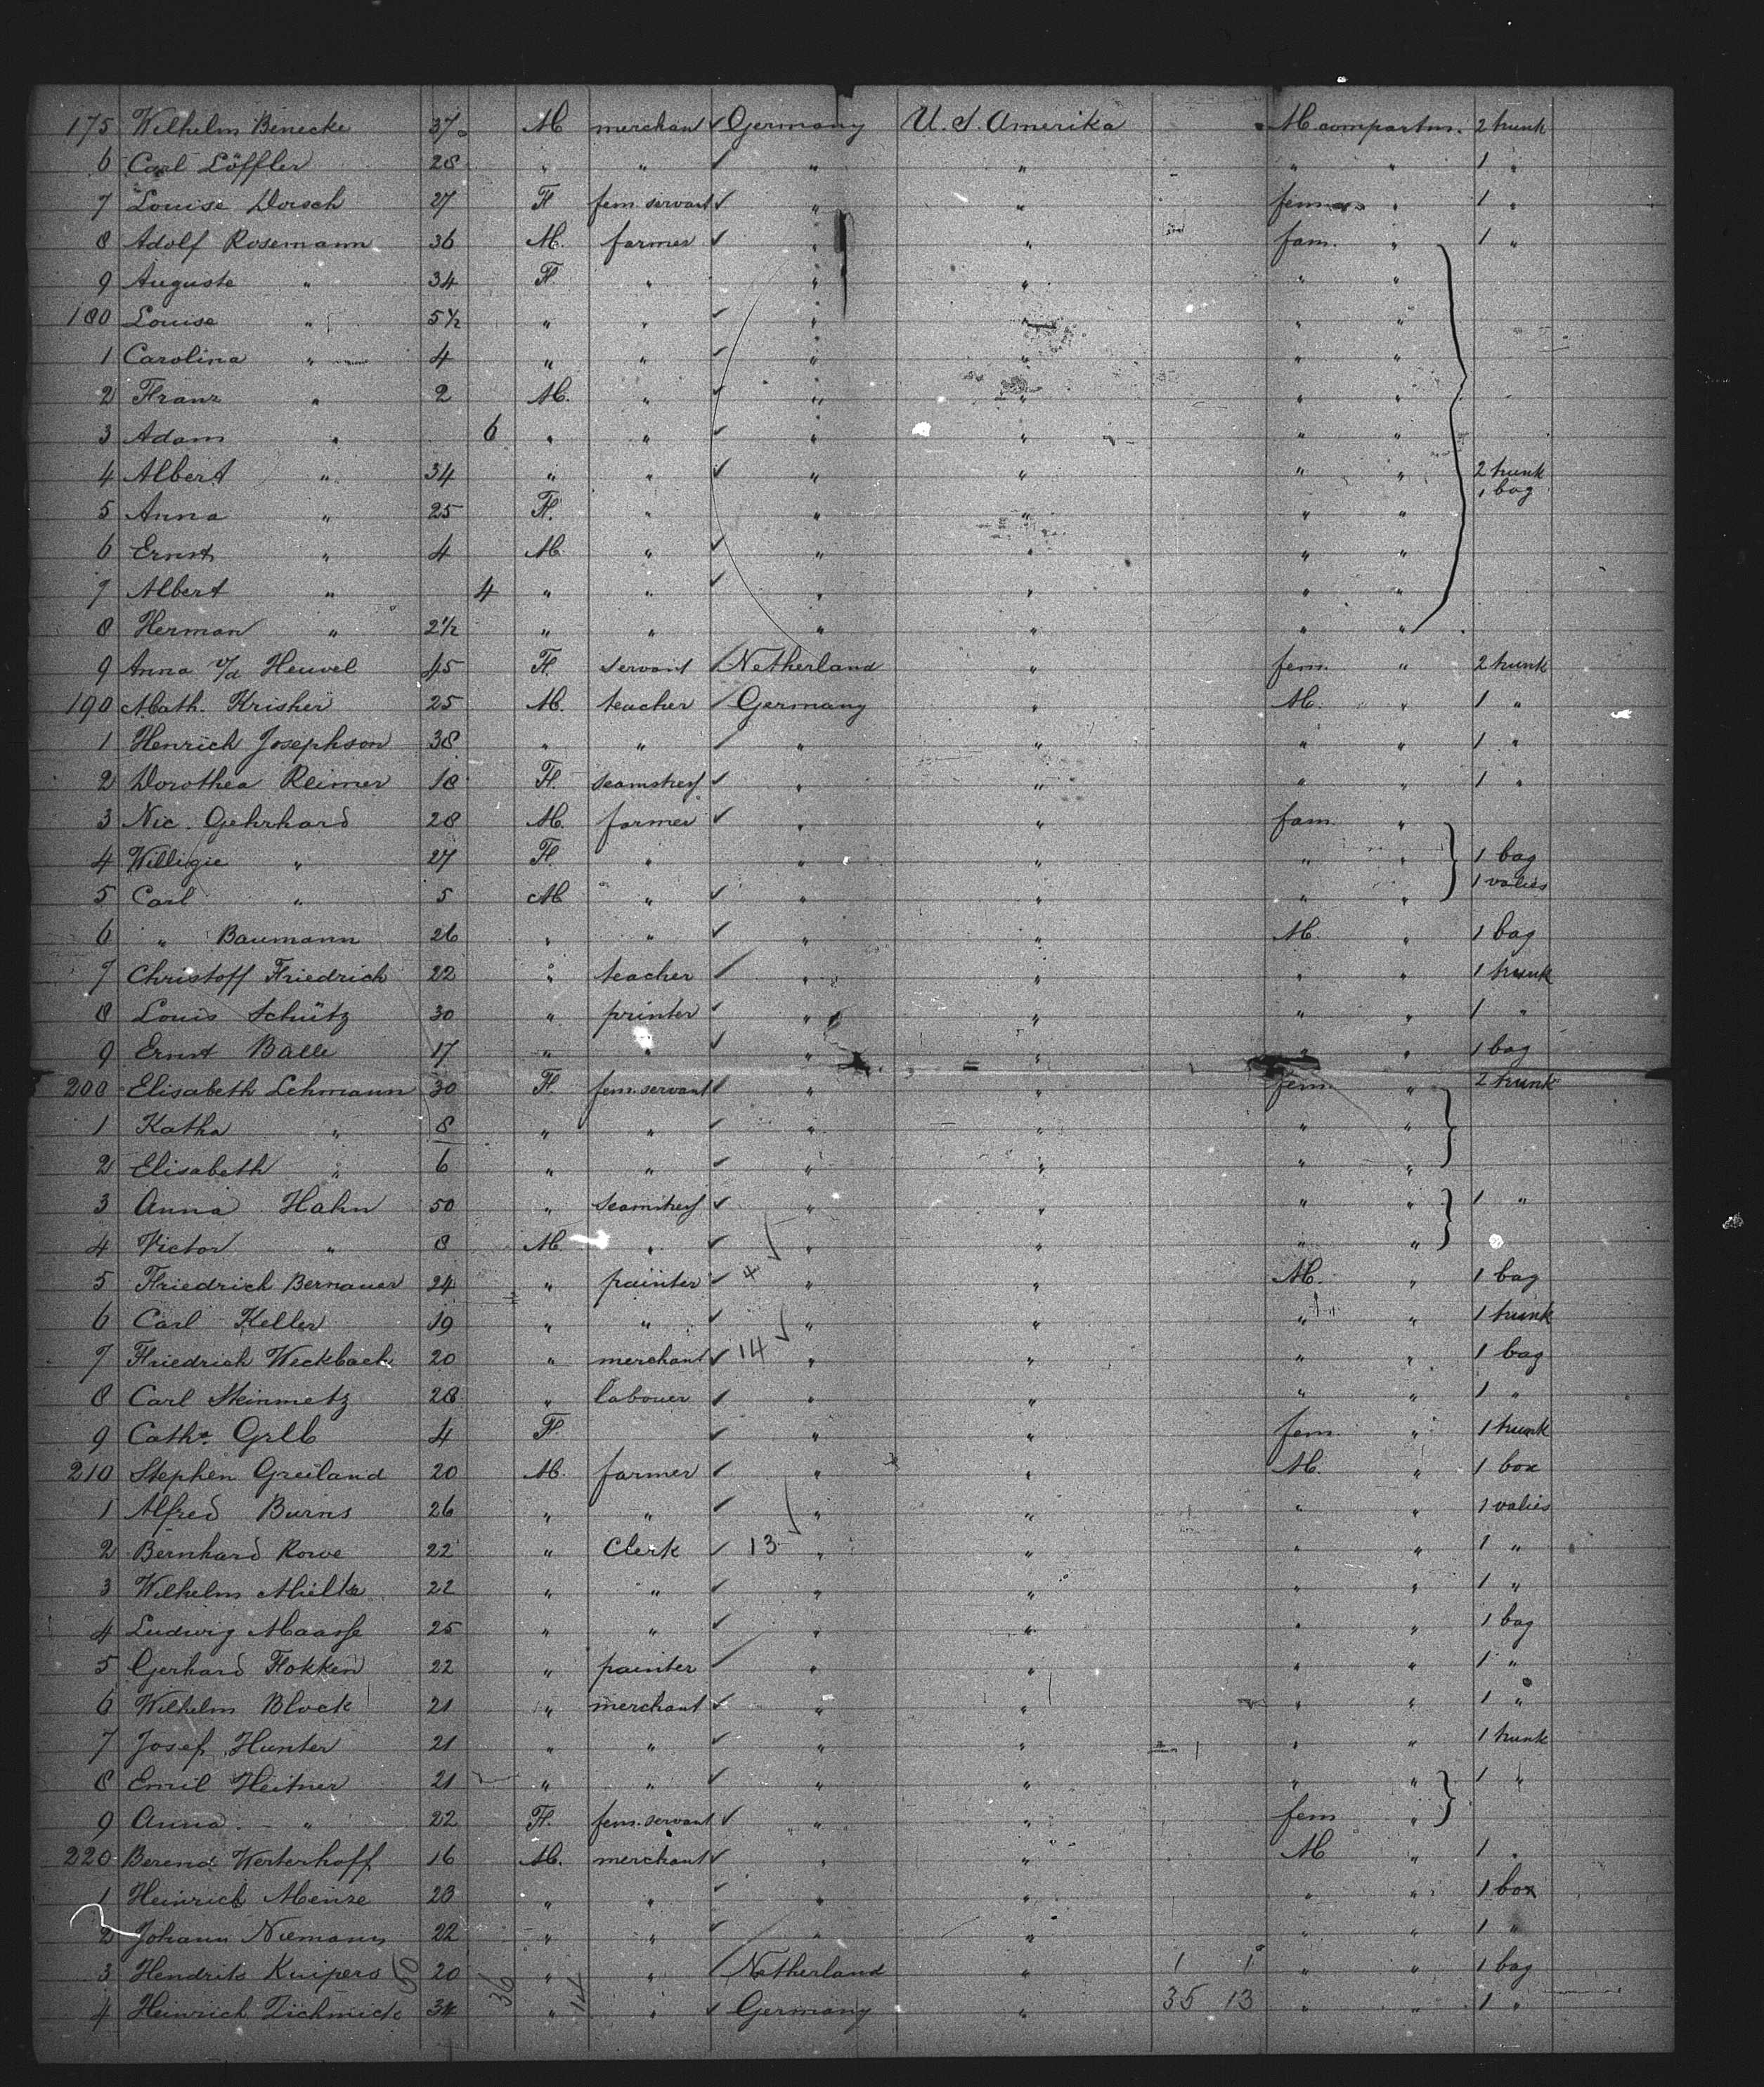 175 Wilhelm Benecke 37 M merchant Germany U. S. Amerika M compartm. 2 trunk
6 Carl Löffler 28 " " " " " " 1 "
7 Louise Dorsch 27 F fem. servant " " fem " 1 "
8 Adolf Rosemann 36 M. farmer " " fam. " 1 "
9 Auguste " 34 F " " " " "
180 Louise " 5½ " " " " " "
1 Carolina " 4 " " " " " "
2 Franz " 2 M. " " " " "
3 Adam " 6 " " " " " "
4 Albert " 34 " " " " " " 2 trunk
1 bag
5 Anna " 25 F. " " " " "
6 Ernst " 4 M " " " " "
7 Albert " 4 " " " " " "
8 Herman " 2½ " " " " " "
9 Anna v/d Heuvel 45 F. servant Netherland " fem. " 2 trunk
190 Math. Krisher 25 M. teacher Germany " M. " 1 "
1 Henrich Josephson 38 " " " " " " 1 "
2 Dorothea Reimer 18 F. seamstress " " " " 1 "
3 Nic. Gehrhard 28 M. farmer " " fam. "
4 Willigie " 27 F. " " " " " 1 bag
1 valies
5 Carl " 5 M " " " " "
6 " Baumann 26 " " " " M. " 1 bag
7 Christoff Friedrich 22 " teacher " " " " 1 trunk
8 Louis Schütz 30 " printer " " " " 1 "
9 Ernst Balle 17 " " " " " " 1 bag
200 Elisabeth Lehmann 30 F. fem. servant " " fem. " 2 trunk
1 Katha " 8 " " " " " "
2 Elisabeth " 6 " " " " " "
3 Anna Hahn 50 " seamstress " " " " 1 "
4 Victor " 8 M " " " " "
5 Friedrich Bernauer 24 " painter 4 " " M. " 1 bag
6 Carl Keller 19 " " " " " " 1 trunk
7 Friedrich Weckback 20 " merchant 14 " " " " 1 bag
8 Carl Steinmetz 28 " labouer " " " " 1 "
9 Catha. 4 F. " " fem " 1 trunk
210 Stephen Greiland 20 M. farmer " " M. " 1 box
1 Alfred Burns 26 " " " " " " 1 valies
2 Bernhard Rowe 22 " Clerk 13 " " " " 1 "
3 Wilhelm Mielke 22 " " " " " " 1 "
4 Ludwig Maasse 25 " " " " " " 1 bag
5 Gerhard Fokken 22 " painter " " " " 1 "
6 Wilhelm Block 21 " merchant " " " " 1 "
7 Josef Hunter 21 " " " " " " 1 trunk
8 Emil Heitner 21 " " " " " " 1 "
9 Anna " 22 F. fem. servant " " fem "
220 Berend Westerhoff 16 M. merchant " " M " 1 "
1 Heinrich Menze 23 " " " " " " 1 box
2 Johann Niemann 22 " " " " " " 1 "
3 Hendriks Kuipers 50 20 36 " 14 " Netherland " 1 1 " " 1 bag
4 Heinrich 34 " " Germany " 35 13 " " 1 "